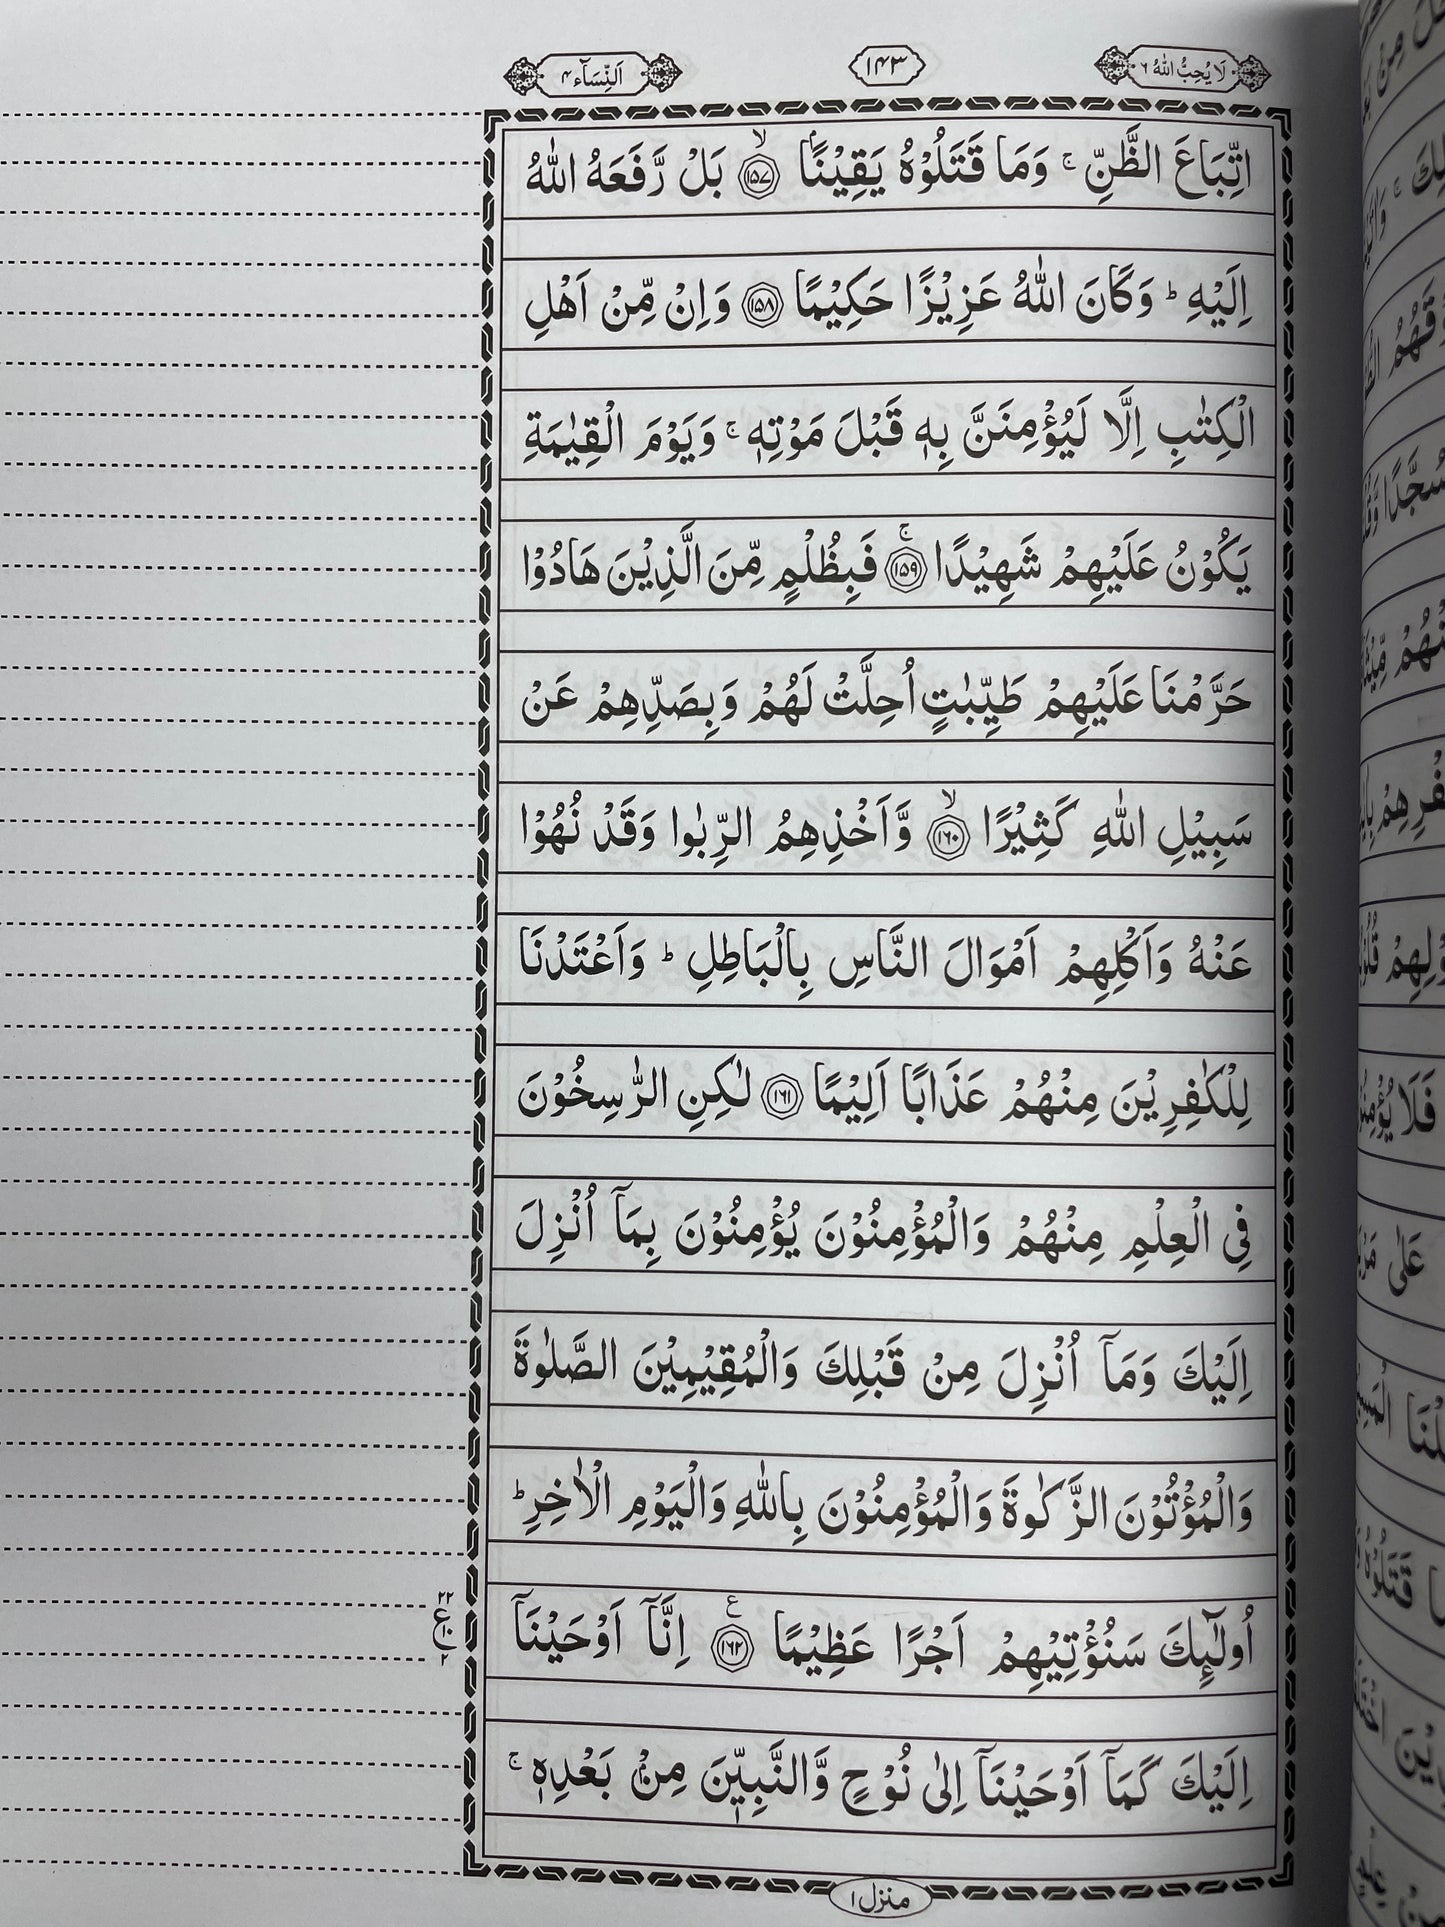 لَا يُحِبُّ اللّٰهُ ٦
١٤٣
اَلنِّسَآء ٤
اتِّبَاعَ الظَّنِّ ۚ وَمَا قَتَلُوْهُ يَقِيْنًاۢ ﴿١٥٧﴾ۙ بَلْ رَّفَعَهُ اللّٰهُ
اِلَيْهِ ؕ وَكَانَ اللّٰهُ عَزِيْزًا حَكِيْمًا ﴿١٥٨﴾ وَاِنْ مِّنْ اَهْلِ
الْكِتٰبِ اِلَّا لَيُؤْمِنَنَّ بِهٖ قَبْلَ مَوْتِهٖ ۚ وَيَوْمَ الْقِيٰمَةِ
يَكُوْنُ عَلَيْهِمْ شَهِيْدًا ﴿١٥٩﴾ۚ فَبِظُلْمٍ مِّنَ الَّذِيْنَ هَادُوْا
حَرَّمْنَا عَلَيْهِمْ طَيِّبٰتٍ اُحِلَّتْ لَهُمْ وَبِصَدِّهِمْ عَنْ
سَبِيْلِ اللّٰهِ كَثِيْرًا ﴿١٦٠﴾ۙ وَّاَخْذِهِمُ الرِّبٰوا وَقَدْ نُهُوْا
عَنْهُ وَاَكْلِهِمْ اَمْوَالَ النَّاسِ بِالْبَاطِلِ ؕ وَاَعْتَدْنَا
لِلْكٰفِرِيْنَ مِنْهُمْ عَذَابًا اَلِيْمًا ﴿١٦١﴾ لٰكِنِ الرّٰسِخُوْنَ
فِي الْعِلْمِ مِنْهُمْ وَالْمُؤْمِنُوْنَ يُؤْمِنُوْنَ بِمَآ اُنْزِلَ
اِلَيْكَ وَمَآ اُنْزِلَ مِنْ قَبْلِكَ وَالْمُقِيْمِيْنَ الصَّلٰوةَ
وَالْمُؤْتُوْنَ الزَّكٰوةَ وَالْمُؤْمِنُوْنَ بِاللّٰهِ وَالْيَوْمِ الْاٰخِرِ ؕ
اُولٰٓئِكَ سَنُؤْتِيْهِمْ اَجْرًا عَظِيْمًا ﴿١٦٢﴾ع اِنَّآ اَوْحَيْنَآ
٢٢
ع ١٠
٢
اِلَيْكَ كَمَآ اَوْحَيْنَآ اِلٰى نُوْحٍ وَّالنَّبِيّٖنَ مِنْۢ بَعْدِهٖ ۚ
منزل ١